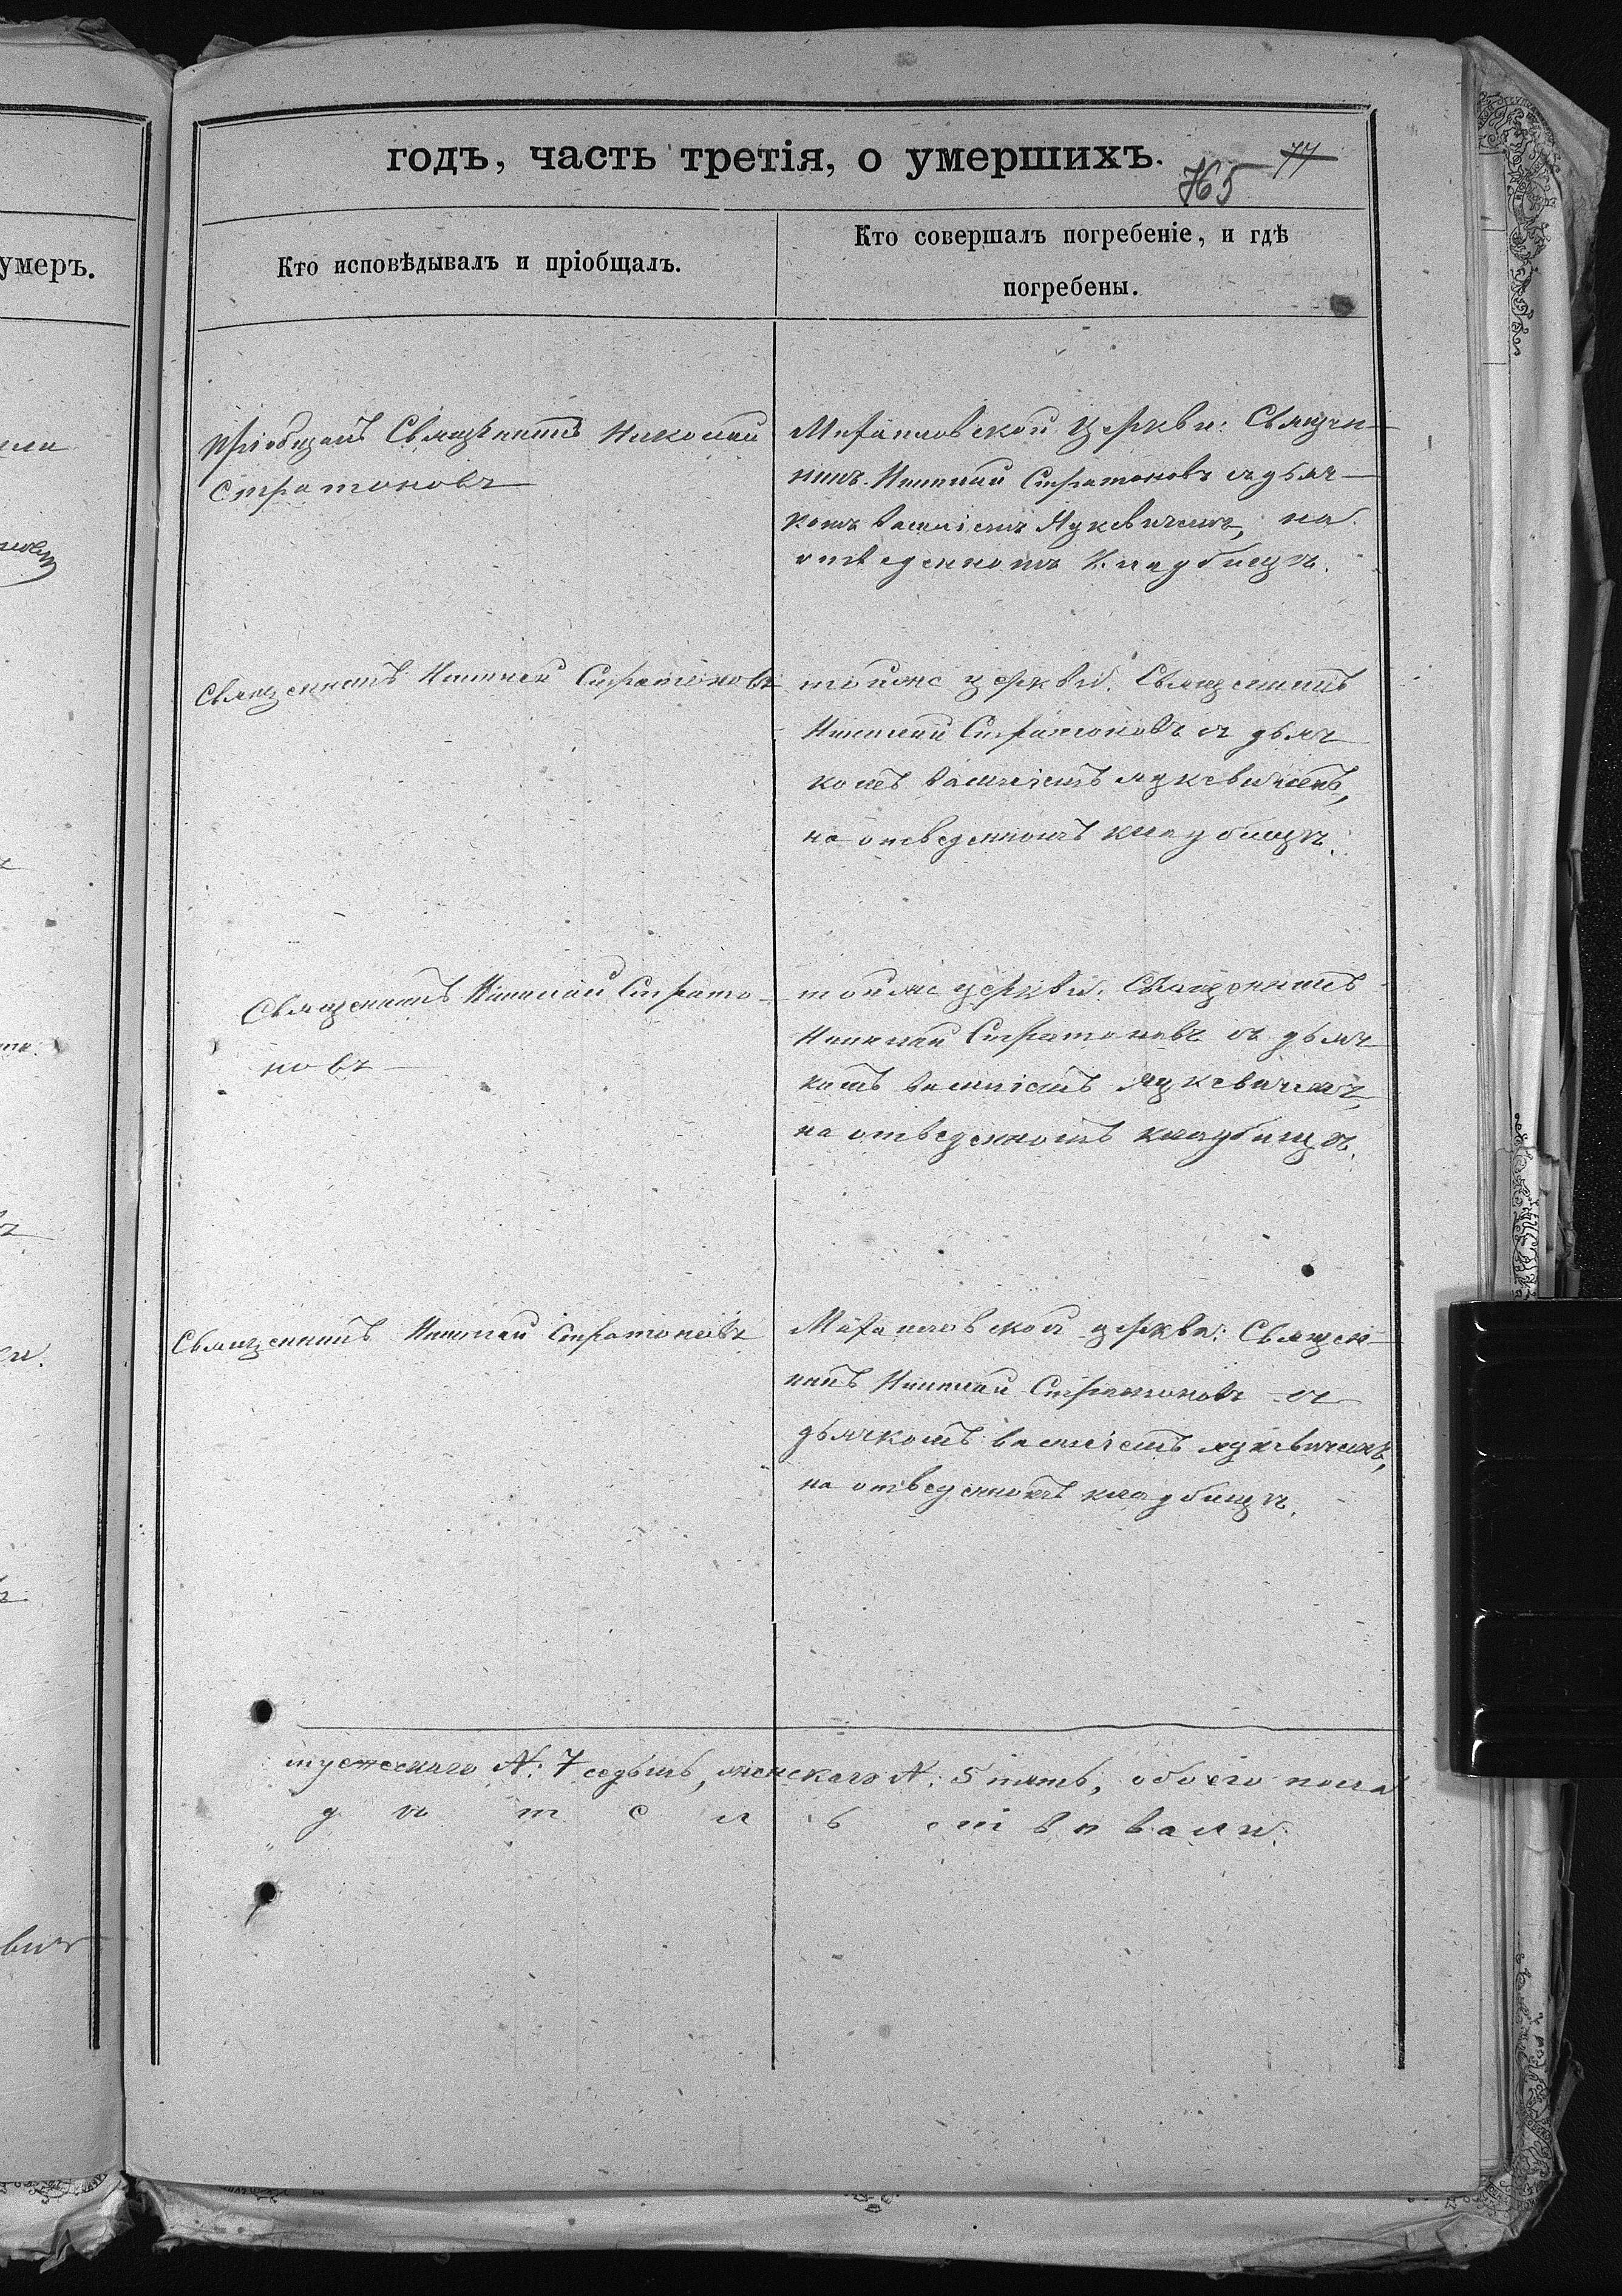 годъ, часть третія, о умершихъ.
77
умеръ.
Кто исповѣдывалъ и пріобщалъ.
Кто совершалъ погребеніе, и гдѣ
погребены.
пріобщалъ Священникъ Николай
Стратоновъ
церкви: Священ-
никъ Николай Стратоновъ съ дьяч-
комъ Василіемъ Яцкевичемъ, на
отведенномъ кладбищѣ.
Священникъ Николай Стратоновъ
тойже церкви: Священникъ
Николай Стратоновъ съ дьяч
комъ Василіемъ Яцкевичемъ,
на отведенномъ кладбищѣ.
Священникъ Николай Страто-
новъ
тойже церкви: Священникъ
Николай Стратоновъ съ дьяч-
комъ Василіемъ Яцкевичемъ,
на отведенномъ кладбищѣ.
Священникъ Николай Стратоновъ
церкви: Священ-
никъ Николай Стратоновъ съ
дьячкомъ Василіемъ Яцкевичемъ,
на отведенномъ кладбищѣ.
мужескаго №: 7 седьмь, женскаго №: 5 пять, обоего пола
вич